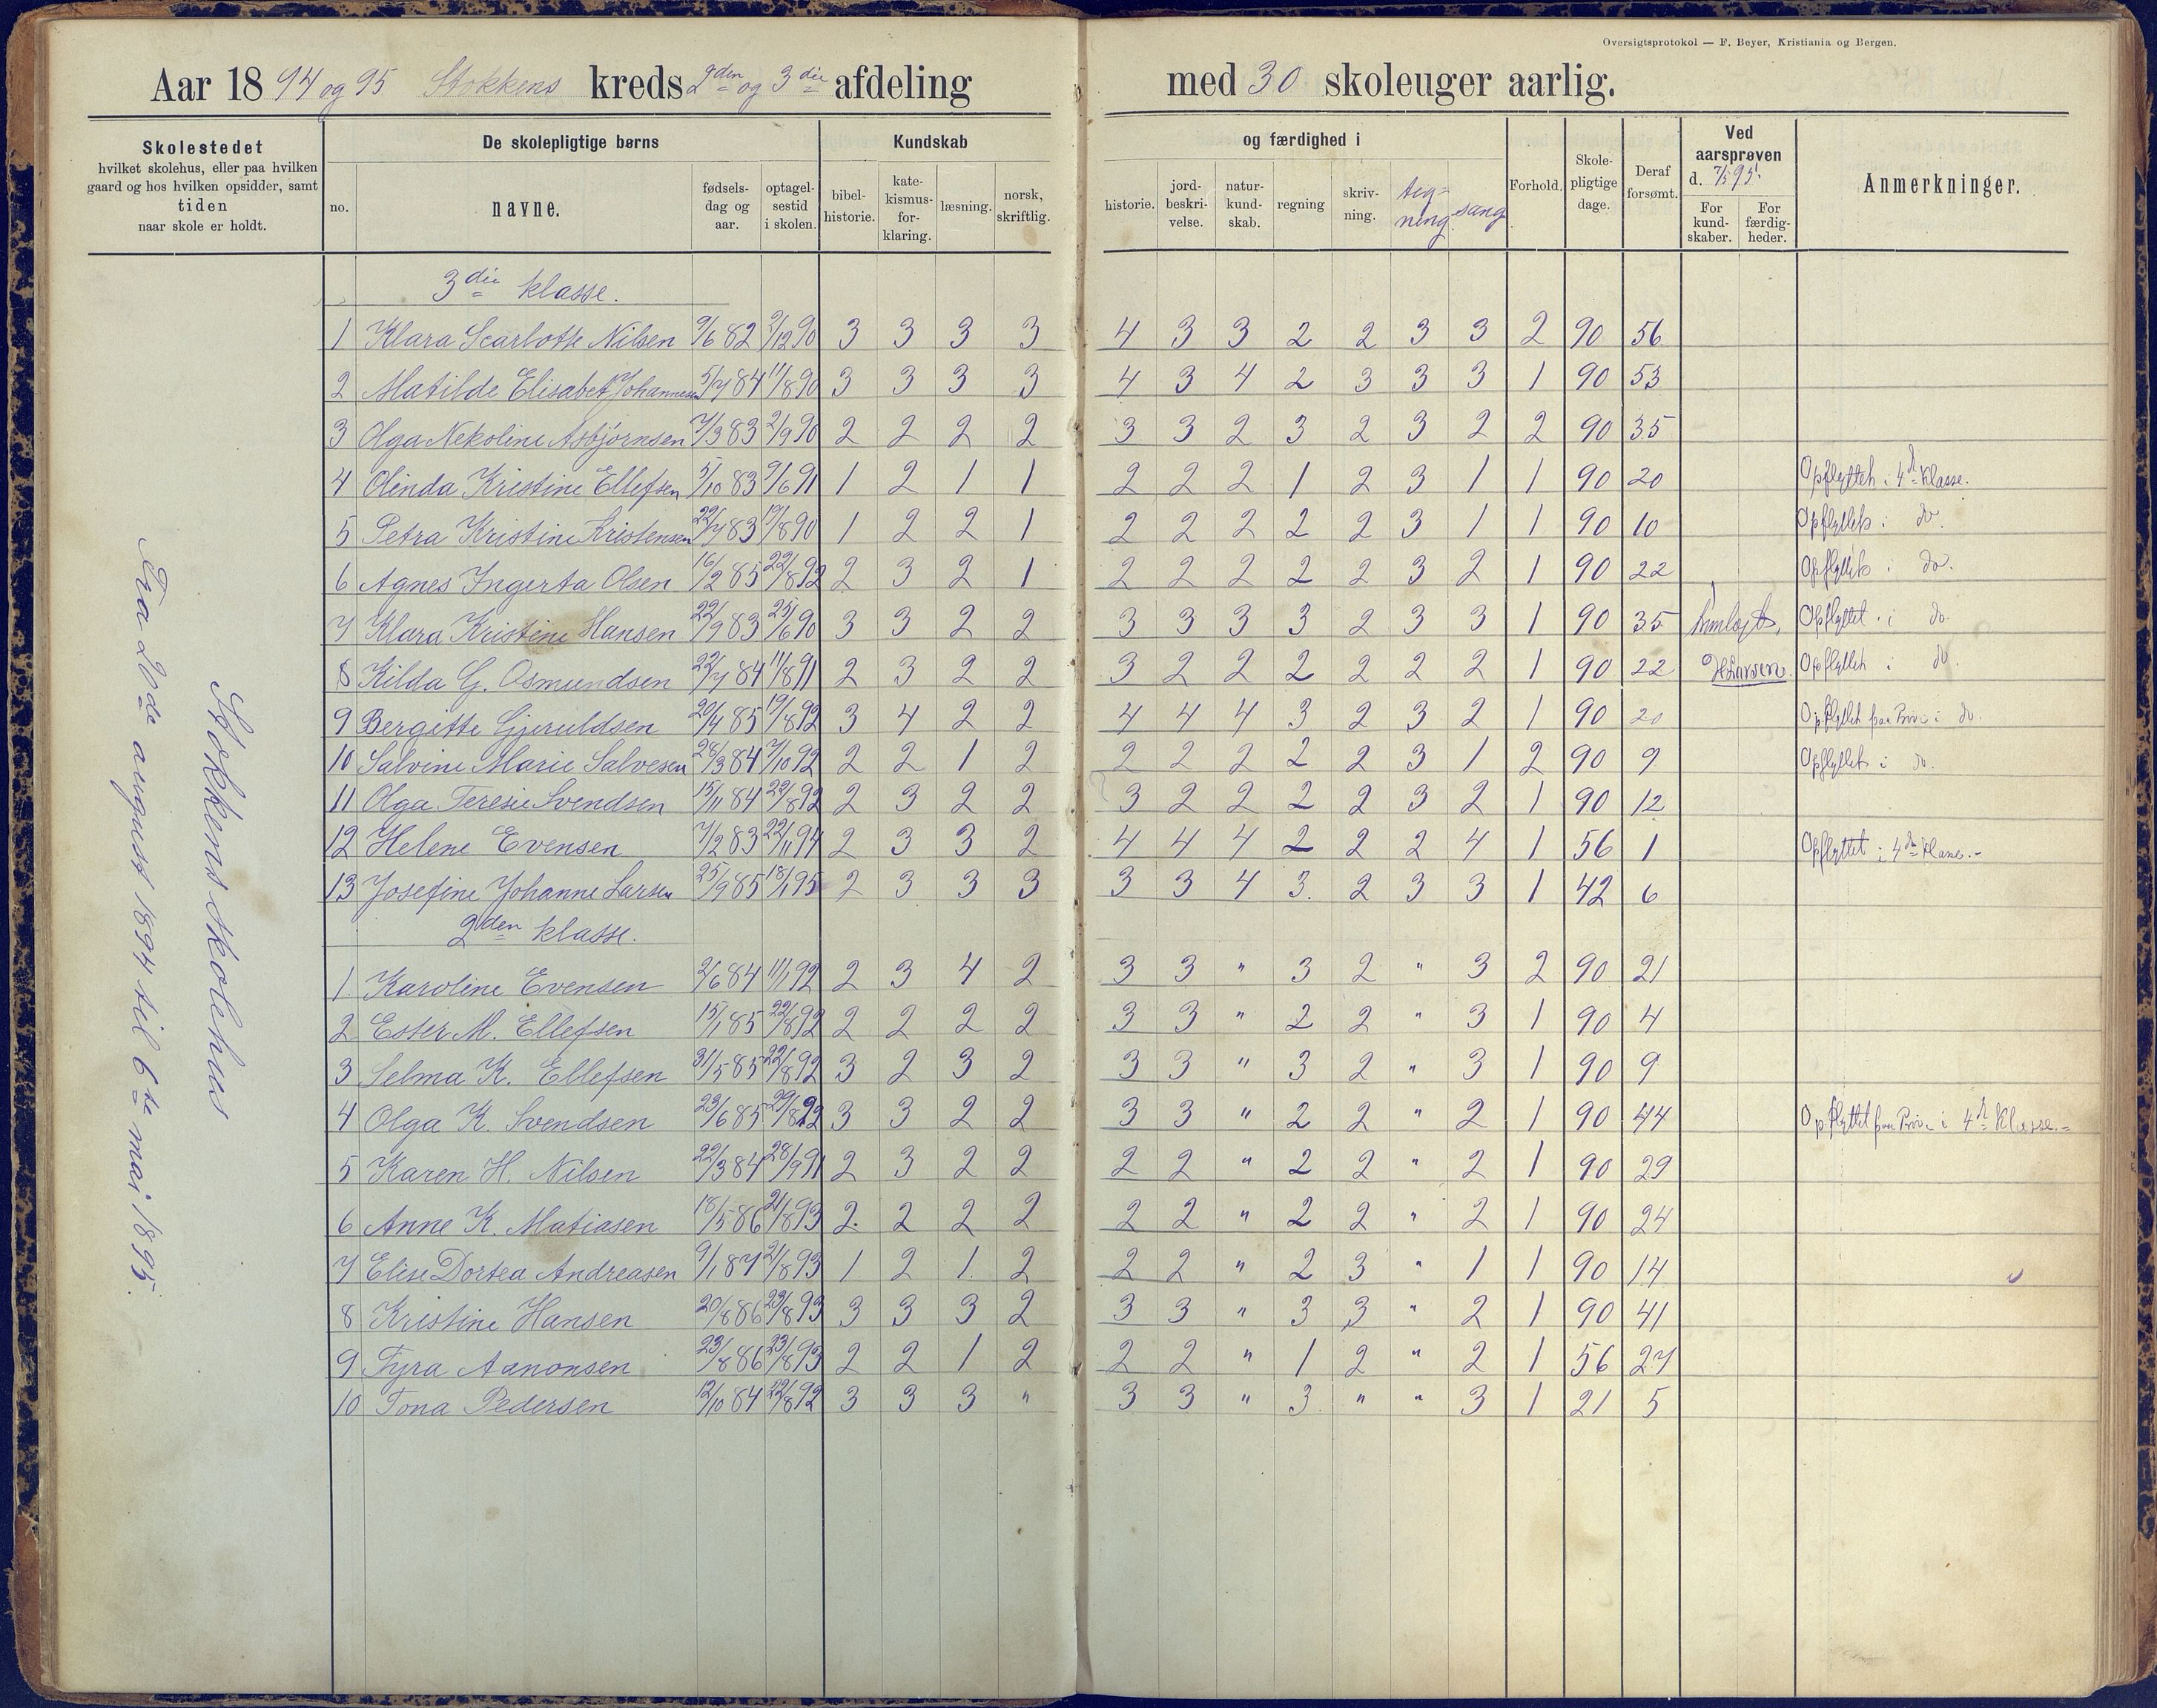 Oversigtsprotokol — F. Beyer, Kristiania og Bergen.
Aar 1894 og 95 Stokkens kreds 2den og 3die afdeling med 30 skoleuger aarlig.
Skolestedet
hvilket skolehus, eller paa hvilken
gaard og hos hvilken opsidder, samt
tiden
naar skole er holdt.
De skolepligtige børns
no.
navne.
fødsels-
dag og
aar.
optagel-
sestid
i skolen.
Kundskab og færdighed i
bibel-
historie.
kate-
kismus-
for-
klaring.
læsning.
norsk,
skriftlig.
historie.
jord-
beskri-
velse.
natur-
kund-
skab.
regning
skriv-
ning.
teg-
ning.
sang
Forhold.
Skole-
pligtige
dage.
Deraf
forsømt.
Ved
aarsprøven
d. 7/5 95.
For
kund-
skaber.
For
færdig-
heder.
Anmerkninger.
Stokkens skolehus
Fra 2de august 1894 til 6te mai 1895.
3die klasse.
1 Klara Scarlotte Nilsen 9/6 82 2/12 90 3 3 3 3 4 3 3 2 2 3 3 2 90 56
2 Matilde Elisabet Johannesen 5/7 84 11/8 90 3 3 3 3 4 3 4 2 3 3 3 1 90 53
3 Olga Nekoline Asbjørnsen 7/3 83 2/9 90 2 2 2 2 3 3 2 3 2 3 2 2 90 35
4 Olinda Kristine Ellefsen 5/10 83 9/6 91 1 2 1 1 2 2 2 1 2 3 1 1 90 20 Opflyttet i 4de Klasse.
5 Petra Kristine Kristensen 22/7 83 19/8 90 1 2 2 1 2 2 2 2 2 3 1 1 90 10 Opflyttet i do.
6 Agnes Ingerta Olsen 16/2 85 22/8 92 2 3 2 1 2 2 2 2 2 3 2 1 90 22 Opflyttet i do.
7 Klara Kristine Hansen 22/9 83 25/6 90 3 3 2 2 3 3 3 3 2 3 3 1 90 35 Opflyttet i do.
8 Hilda G. Osmundsen 22/7 84 11/8 91 2 3 2 2 3 2 2 2 2 2 2 1 90 22 HLarsen. Opflyttet i do.
9 Bergitte Gjeruldsen 20/4 85 19/8 92 3 4 2 2 4 4 4 3 2 3 2 1 90 20 Opflyttet paa Prøve i do.
10 Salvine Marie Salvesen 28/3 84 7/10 92 2 2 1 2 2 2 2 2 2 3 1 2 90 9 Opflyttet i do.
11 Olga Teresie Svendsen 15/11 84 22/8 92 2 3 2 2 3 2 2 2 2 3 2 1 90 12
12 Helene Evensen 7/2 83 22/11 94 2 3 3 2 4 4 4 2 2 2 4 1 56 1 Opflyttet i 4de Klasse.-
13 Josefine Johanne Larsen 25/9 85 18/1 95 2 3 3 3 3 3 4 3. 2 3 3 1 42 6
2den klasse.
1 Karoline Evensen 2/6 84 11/1 92 2 3 4 2 3 3 " 3 2 " 3 2 90 21
2 Ester M. Ellefsen 15/1 85 22/8 92 2 2 2 2 3 3 " 2 2 " 3 1 90 4
3 Selma K. Ellefsen 31/5 85 22/8 92 3 2 3 2 3 3 " 3 2 " 3 1 90 9
4 Olga K. Svendsen 23/6 85 29/8 92 3 3 2 2 3 3 " 2 2 " 2 1 90 44 Opflyttet paa Prøve i 4de Klasse.-
5 Karen H. Nilsen 22/3 84 28/9 91 2 3 2 2 2 2 " 2 2 " 2 1 90 29
6 Anne K. Matiasen 18/5 86 21/8 93 2. 2 2 2 2 2 " 2 2 " 2 1 90 24
7 Elise Dortea Andreasen 9/1 87 21/8 93 1 2 1. 2 2 2 " 2 3 " 1 1 90 14
8 Kristine Hansen 20/8 86 23/8 93 3 3 3 2 3 3 " 3 3 " 2 1 90 41
9 Tyra Aanonsen 23/8 86 23/8 93 2 2 1 2 2 2 " 1 2 " 2 1 56 27
10 Tona Pedersen 12/10 84 22/8 92 3 3 3 " 3 3 " 3. " " 3 1 21 5